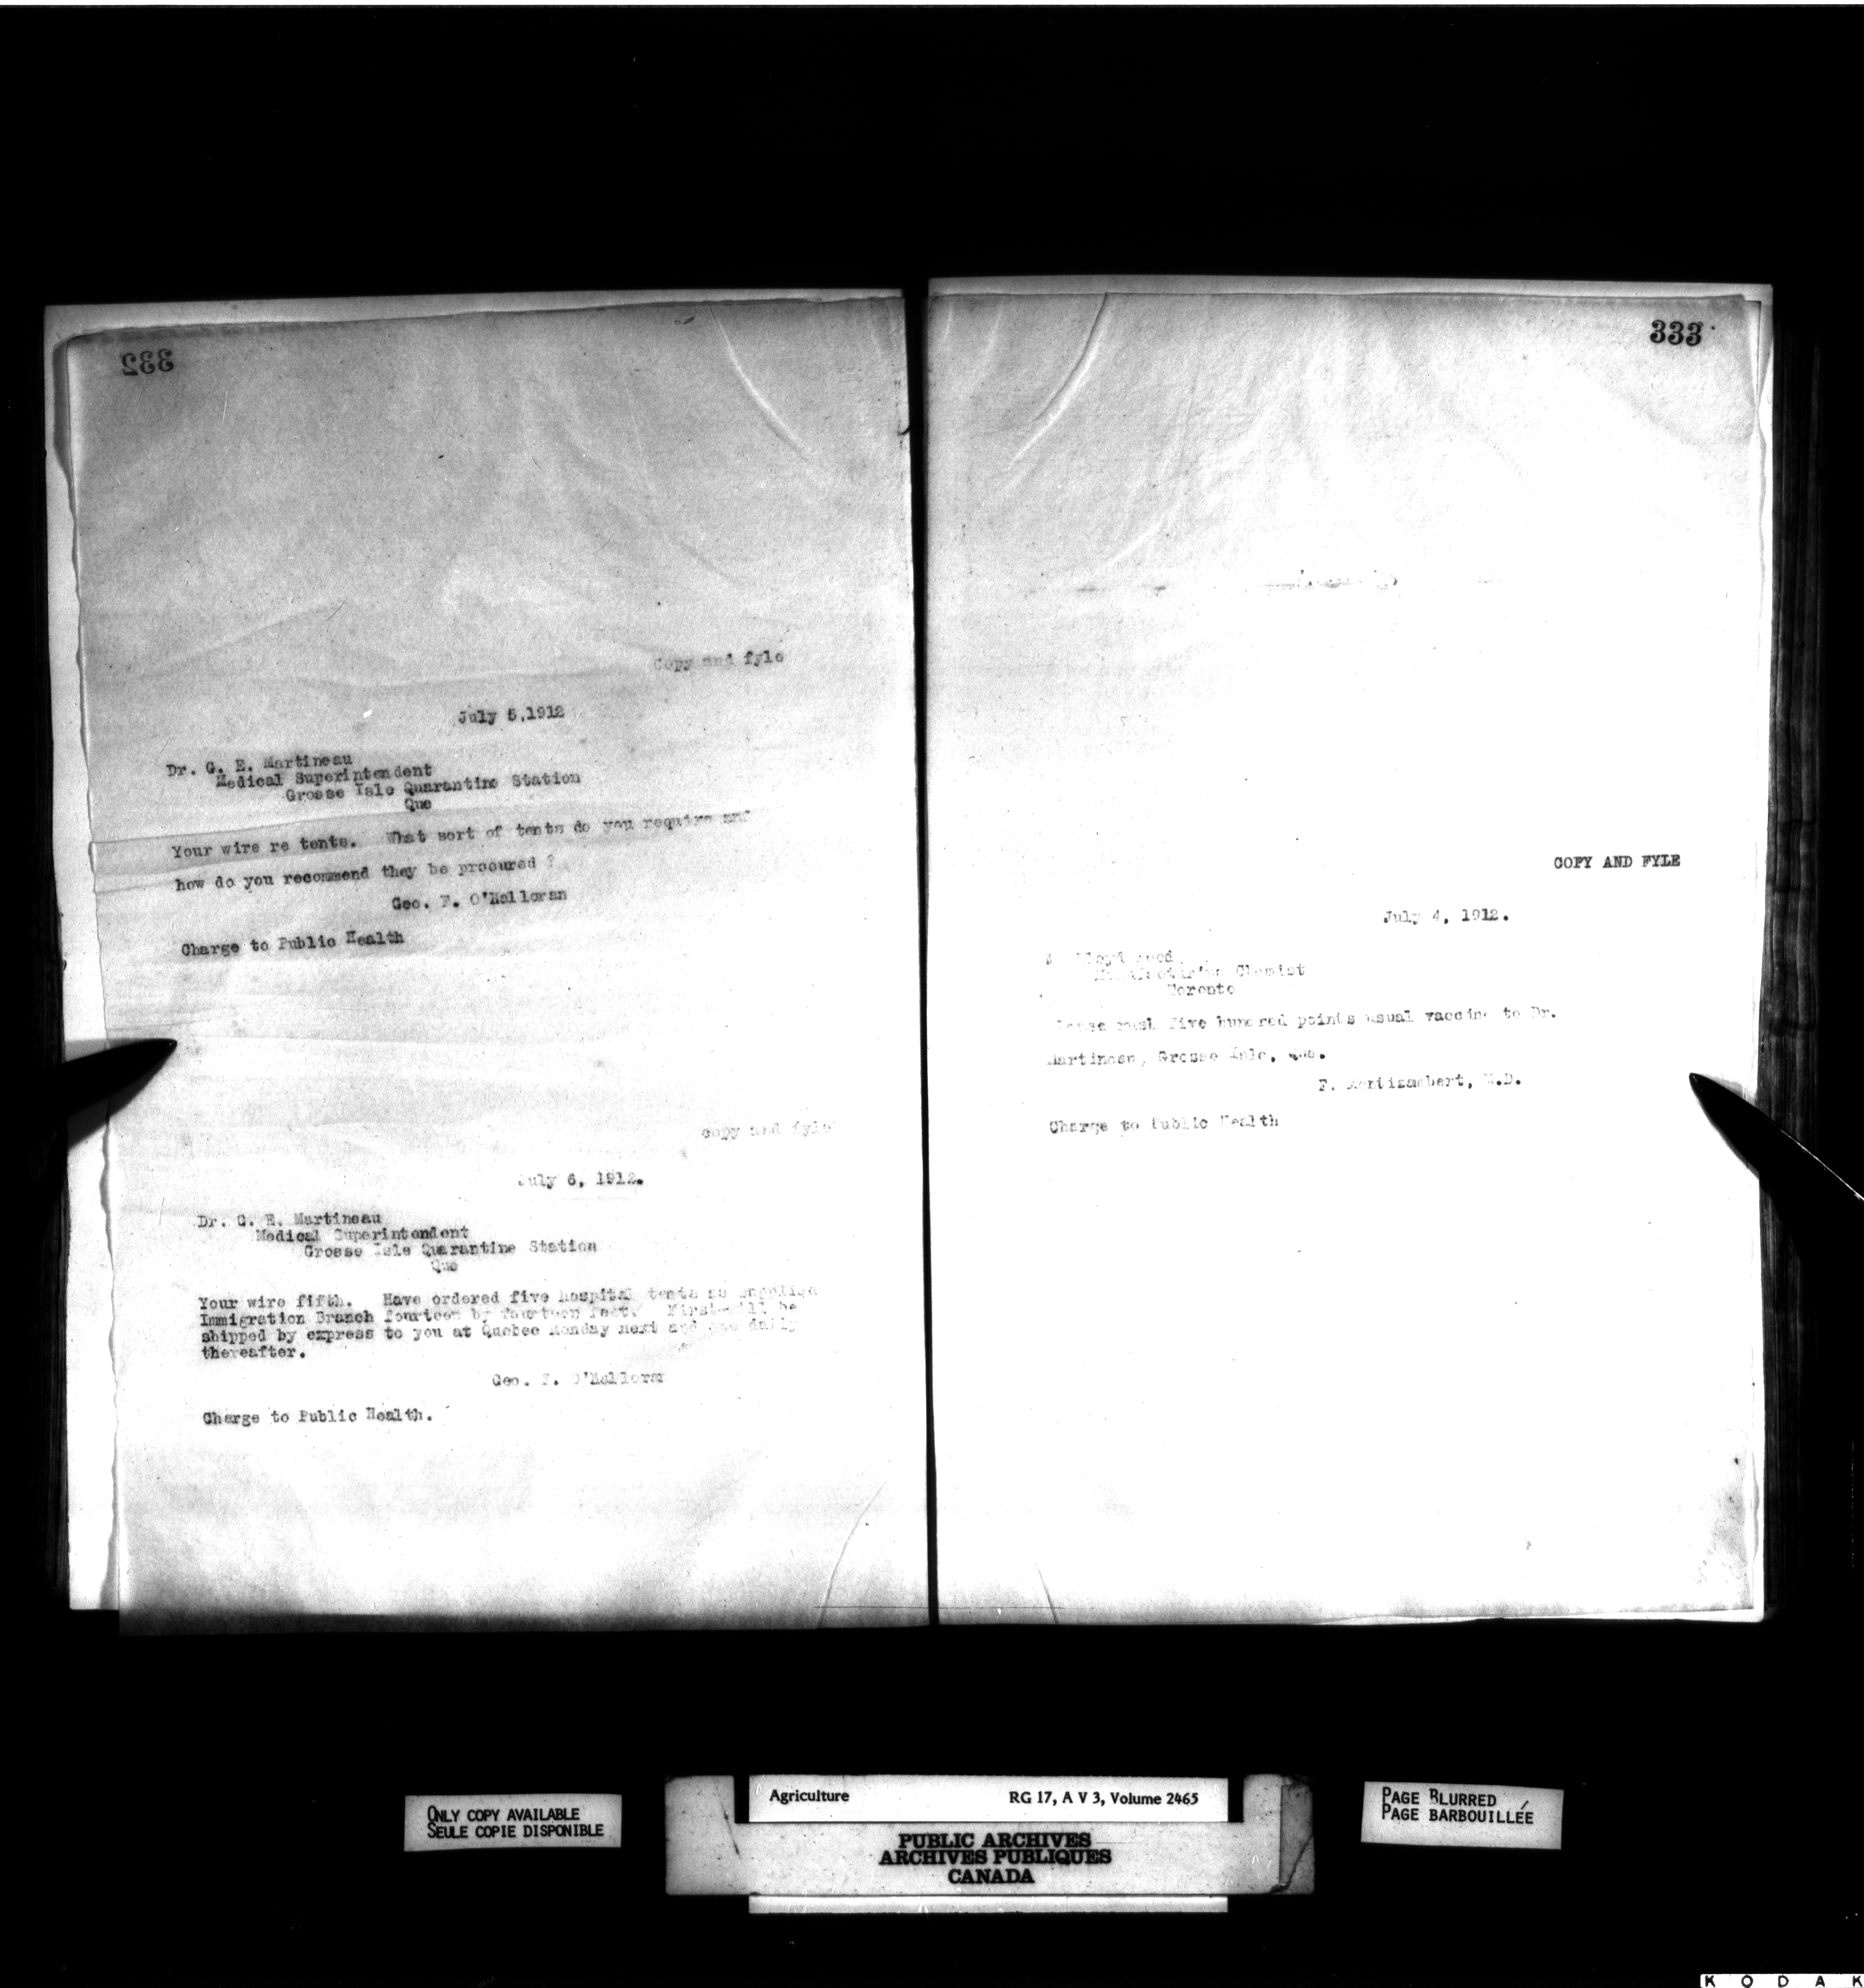 332
Copy and fyle
July 5,1912
Dr. G. E. Martineau
Medical Superintendent
Grosse Isle Quarantine Station
Que
Your wire re tents. What sort of tents do you require and
how do you recommend they be procured ?
Geo. F. O'Halloran
Charge to Public Health
copy and fyle
July 6, 1912.
Dr. G. E. Martineau
Medical Superintendent
Grosse Isle Quarantine Station
Que
Your wire fifth. Have ordered five hospital tents as supplied
Immigration Branch fourteen by fourteen feet. First will be
shipped by express to you at Quebec Monday next and one daily
thereafter.
Geo. F. O'Halloran
Charge to Public Health.
333
COPY AND FYLE
July 4, 1912.
Lloyd
Chemist
Toronto
five hundred points usual vaccine to Dr.
Martineau, Grosse Isle, Que.
F. Montizambert, M.D.
Charge to Public Health
ONLY COPY AVAILABLE
SEULE COPIE DISPONIBLE
Agriculture RG 17, A V 3, Volume 2465
PUBLIC ARCHIVES
ARCHIVES PUBLIQUES
CANADA
PAGE BLURRED
PAGE BARBOUILLÉE
KODAK